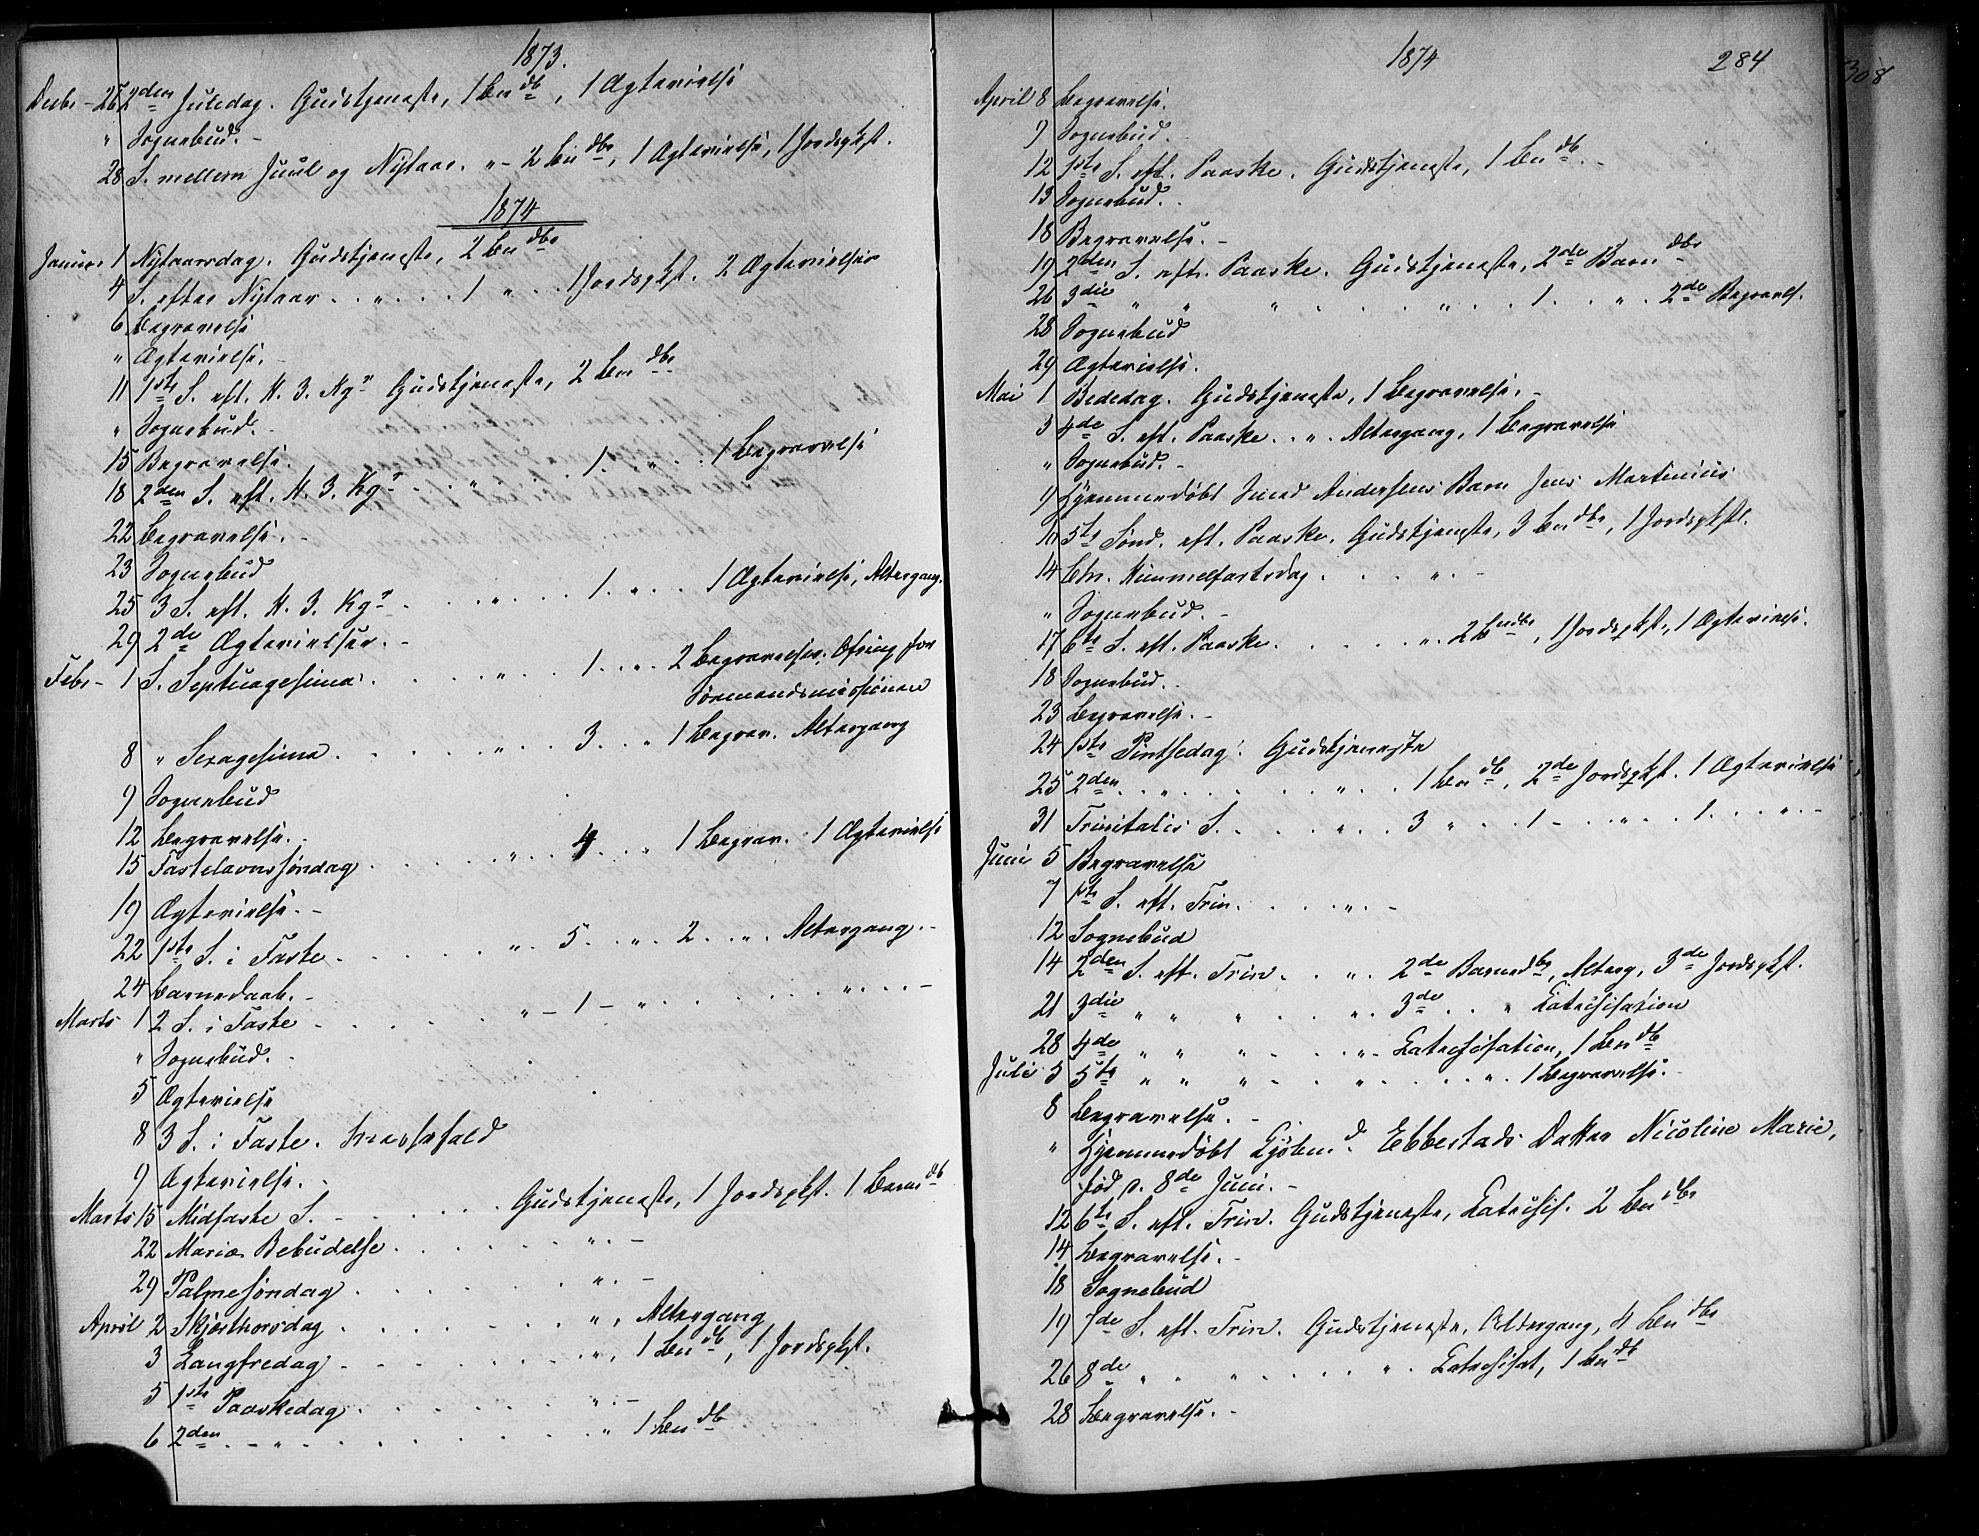 1873.
Decbr - 26 2den Juledag. Gudstjeneste, 1 Bndb, 1 Ægtevielse
" Sognebud. -
28 S. mellem Juul og Nytaar. " - 2 Bndbe, 1 Ægtevielse, 1 Jordspkst.
1874
Januar 1 Nytaarsdag. Gudstjeneste, 2 Bndbe
4 S. efter Nytaar . . " . . . 1 " . . 1 Jordspkst. 2 Ægtevielser
6 Begravelse
" Ægtevielse.
11 1ste S. eft. H. 3. Kgr Gudstjeneste, 2 Bndbe
" Sognebud. -
15 Begravelse.
18 2den S. eft. H. 3. Kgr . . " . . . 1. . " . . 1 Begravelse
22 Begravelse. -
23 Sognebud
25 3 S. eft. H. 3. Kgr . . . " . . . 1. . " . . 1 Ægtevielse, Altergang.
29 2de Ægtevielser. -
Febr - 1 S. Septuagesima . . . . " . . . 1. . " . 2 Begravelser. Ofring for
Sømandsmissionen
8 " Sexagesima . . . . . " . . 3. . " 1 Begrav. Altergang
9 Sognebud
12 Begravelse. -
15 Fastelavnssøndag . . . . . " . . 4 . . " 1 Begrav. 1 Ægtevielse
19 Ægtevielse. -
22 1ste S. i Faste . . . . . " . 5. . " . 2. . " . Altergang. -
24 Barnedaab. -
Marts 1 2 S. i Faste . . . . . " - 1 - " . . . . . . " . . . -
" Sognebud. -
5 Ægtevielse
8 3 S. i Faste. Messefald
9 Ægtevielse. -
Marts 15 Midfaste S. - . . . . . Gudstjeneste, 1 Jordspkst. 1 Barnedb
22 Mariæ Bebudelse . . . . . " . -
29 Palmesøndag . . . . . . " . -
April 2 Skjærthorsdag . . . . . . " , Altergang
3 Langfredag . . . . . . " , 1 Bndb, 1 Jordspkst.
5 1ste Paaskedag . . . . . . " . -
6 2den . - " . . . . . . . " 1 Bndb
1874 284
308
April 8 Begravelse.
9 Sognebud.
12 1ste S. eft. Paaske. Gudstjeneste, 1 Bndb. -
13 Sognebud. -
18 Begravelse. -
19 2den S. eft. Paaske. Gudstjeneste, 2de Barndbe
26 3die " " " . . . . " . . 1. . . " . 2de Begravels.
28 Sognebud
29 Ægtevielse.
Mai 1 Bededag. Gudstjeneste, 1 Begravelse. -
3 4de S. eft. Paaske. . " . Altergang, 1 Begravelse
" Sognebud. -
9 Hjemmedøbt Smed Andersens Barn Jens Martinius
10 5te Sønd. eft. Paaske. Gudstjeneste, 3 Bndbe, 1 Jordspkst.
14 Chr. Himmelfartsdag . . . . " . -
" Sognebud. -
17 6te S. eft. Paaske. . . . . " . 2 Bndbe, 1 Jordspkst, 1 Ægtevielse.
18 Sognebud. -
23 Begravelse. -
24 1ste Pintsedag. Gudstjeneste
25 2den . . " . . . . " . . 1 Bndb, 2de Jordspkst. 1 Ægtevielse
31 Trinitatis S. . . . " . . 3 " . . 1 - . . " . . 1. . . " . -
Juni 5 Begravelse
7 1ste S. eft. Trin. . . . " . -
12 Sognebud
14 2den S. eft. Trin. . . " . 2de Barnedbe, Alterg, 3de Jordspkst.
21 3die " " " . . " . 3de . . " Catechisation
28 4de " " " . . . " - Catechisation, 1 Bndb
Juli 5 5te " " " . . . " . . . . " . 1 Begravelse. -
8 Begravelse. -
" Hjemmedøbt Kjøbmd. Ebbestads Datter Nicoline Marie,
fød d. 8de Juni. -
12 6te S. eft. Trin. Gudstjeneste, Catechis. 2 Bndbe
14 Begravelse. -
18 Sognebud
19 7de S. eft. Trin. Gudstjeneste, Altergang, 4 Bndbe
26 8de " " " . . . . . " . Catechisat, 1 Bndb
28 Begravelse. -